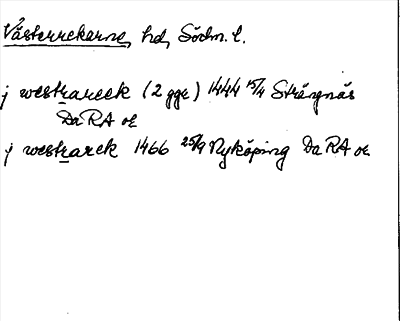 Västerrekarne, hd, Södm. l.
j westrareek (2 gge) 1444 15/4 Strängnäs
DaRA or
j westrarek 1466 25/9 Nyköping DaRA or